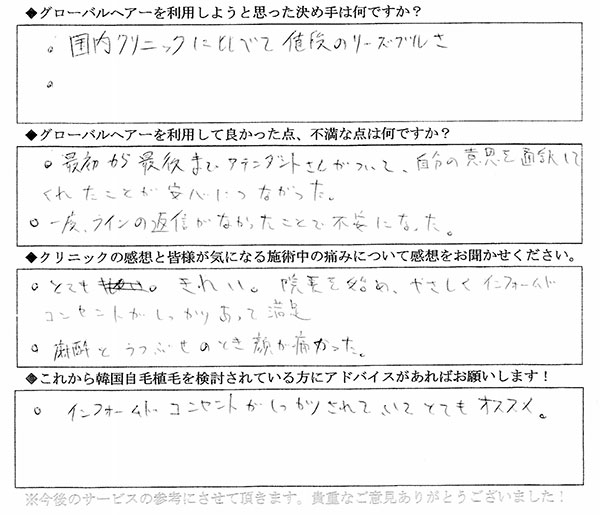 ◆グローバルヘアーを利用しようと思った決め手は何ですか？
。国内クリニックにくらべて値段のリーズブルさ
。
◆グローバルヘアーを利用して良かった点、不満な点は何ですか？
。最初から最後まで、アテンダントさんがついて、自分の意思を通訳して
くれたことが安心につながった。
。一度、ラインの返信がなかったことで不安になった。
◆クリニックの感想と皆様が気になる施術中の痛みについて感想をお聞かせください。
。とても きれい。院長を始め、やさしくインフォームド
コンセントがしっかりあって満足
。麻酔とうつぶせのとき顔が痛かった。
◆これから韓国自毛植毛を検討されている方にアドバイスがあればお願いします！
。インフォームド コンセントがしっかりされていてとてもオススメ。
※今後のサービスの参考にさせて頂きます。貴重なご意見ありがとうございました！